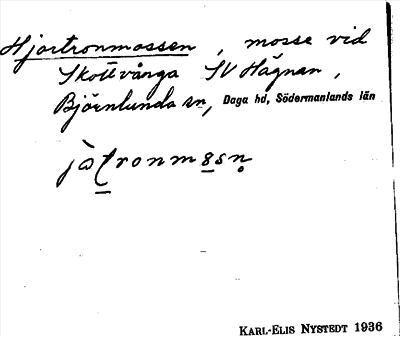 Hjortronmossen, mosse vid
Skottvånga SV Hågnen,
Björnlunda sn, Daga hd, Södermanlands län
KARL-ELIS NYSTEDT 1936